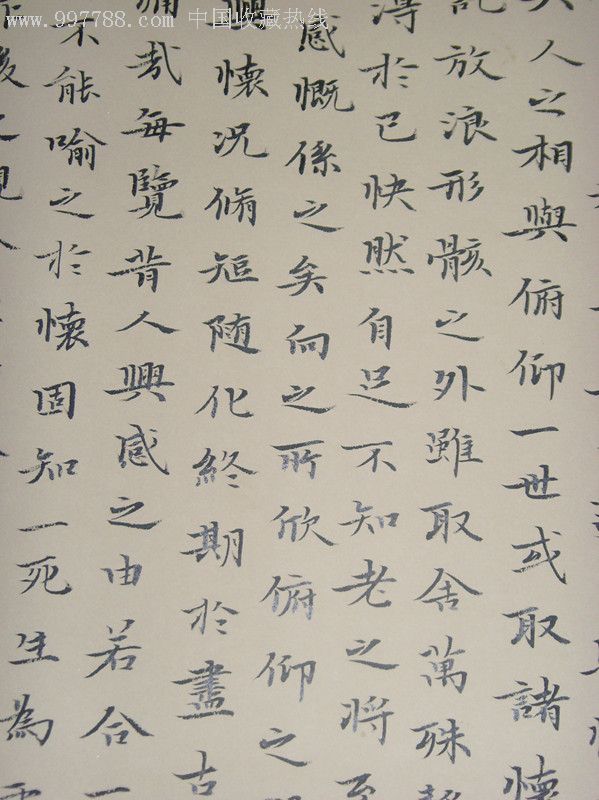 www.997788.com 中国收藏热线
人之相與俯仰一世或取諸懷
放浪形骸之外雖取舍萬殊
得於己快然自足不知老之將至
感慨係之矣向之所欣俯仰之
興懷況脩短随化終期於盡古
痛哉每覽昔人興感之由若合一
不能喻之於懷固知一死生為